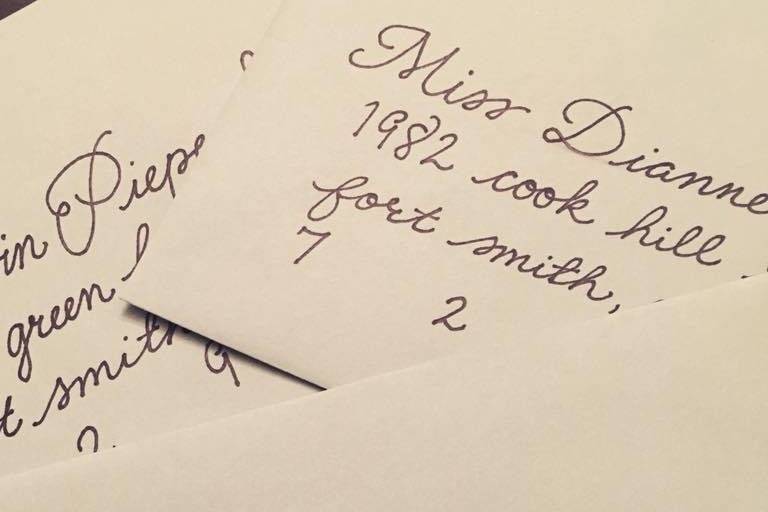 Miss Dianne
1982 cook hill
fort smith,
7
2
in Piepe
green
t smith
9
2